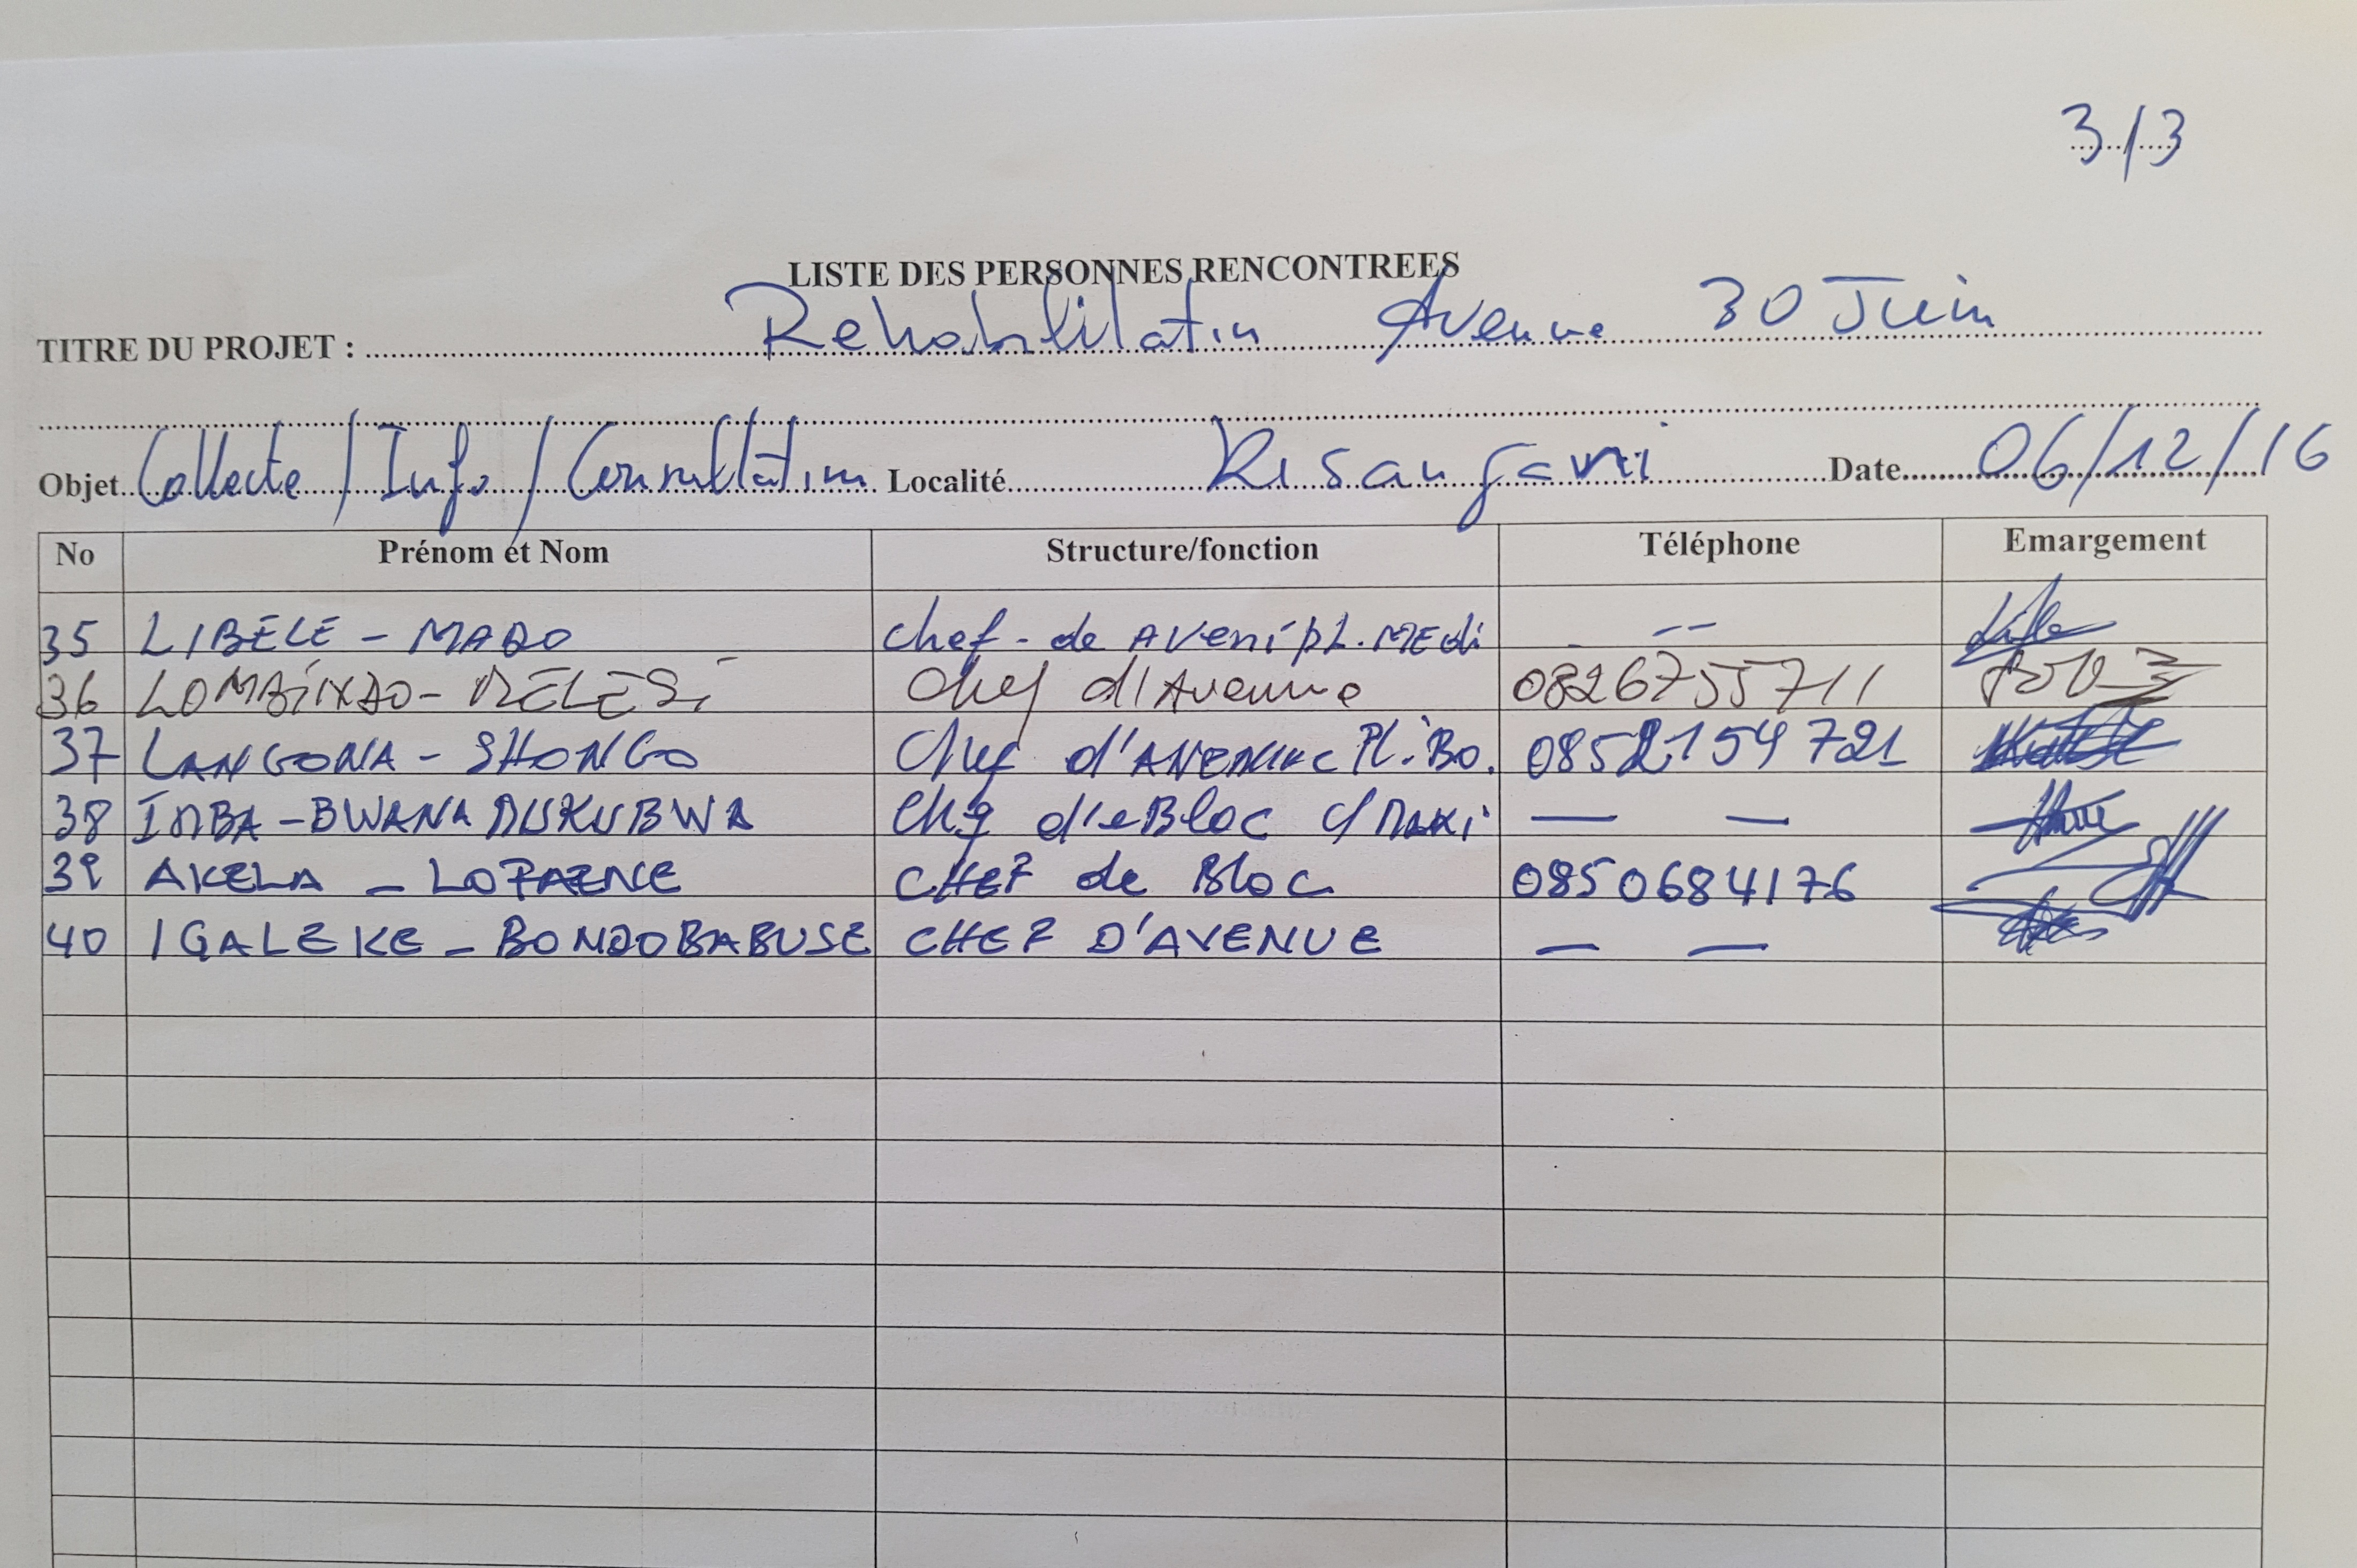 3/3
LISTE DES PERSONNES RENCONTREES
TITRE DU PROJET : Rehablilatin Avenue 30 Juin
Objet Collecte / Info / Consultatim Localité Kisangani Date 06/12/16
No Prénom et Nom Structure/fonction Téléphone Emargement
35 LIBELE - MADO chef - de AVeni pL. MEdi --
36 chef d'Avenue 0826755711
37 LANGONA - SHONGO Chef d'AVENUE Pl. Bo. 0852154721
38 IMBA - BWANA MUKUBWA Bloc — —
39 AKELA - CHEF de Bloc 0850684176
40 IGALEKE - BONDOBABUSE CHEF D'AVENUE — —